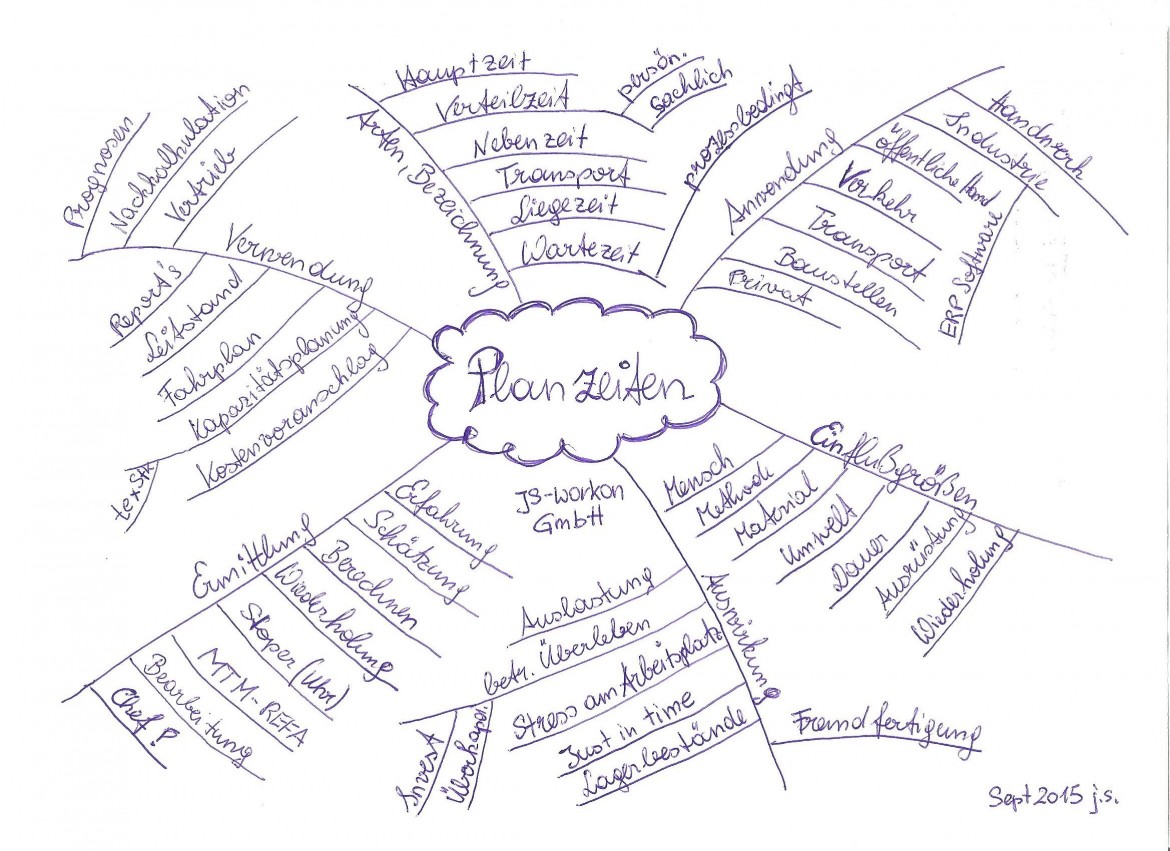 Planzeiten
JS-workon
GmbH
Arten, Bezeichnung
Hauptzeit
Verteilzeit
persön.
sachlich
Nebenzeit
Transport
Liegezeit
Wartezeit
prozessbedingt
Anwendung
Handwerk
Industrie
ERP Software
öffentliche Hand
Verkehr
Transport
Baustellen
Privat
Einflußgrößen
Mensch
Methode
Material
Umwelt
Dauer
Ausrüstung
Wiederholung
Auswirkung
Auslastung
betr. Überleben
Invest
Überkapa.
Stress am Arbeitsplatz
Just in time
Lagerbestände
Fremdfertigung
Ermittlung
Erfahrung
Schätzung
Berechnen
Wiederholung
Stoper (Uhr)
MTM-REFA
Bearbeitung
Chef?
Verwendung
Prognosen
Nachkalkulation
Vertrieb
Report's
Leitstand
Fahrplan
Kapazitätsplanung
te x Stk
Kostenvoranschlag
Sept 2015 j.s.